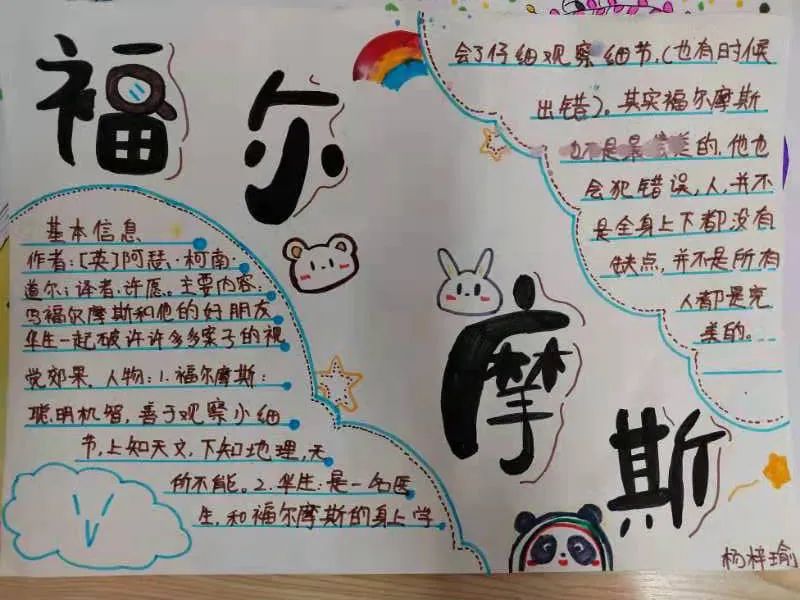 福尔摩斯
基本信息
作者:[英]阿瑟·柯南·
道尔;译者:许愿。主要内容:
写福尔摩斯和他的好朋友
华生一起破许许多多案子的视
觉效果。人物:1.福尔摩斯:
聪明机智,善于观察小细
节,上知天文,下知地理,无
所不能。2.华生:是一名医
生,和福尔摩斯的身上学
会了仔细观察细节,(也有时候
出错)。其实福尔摩斯
也不是最美的,他也
会犯错误,人,并不
是全身上下都没有
缺点,并不是所有
人都是完
美的。
杨梓瑜